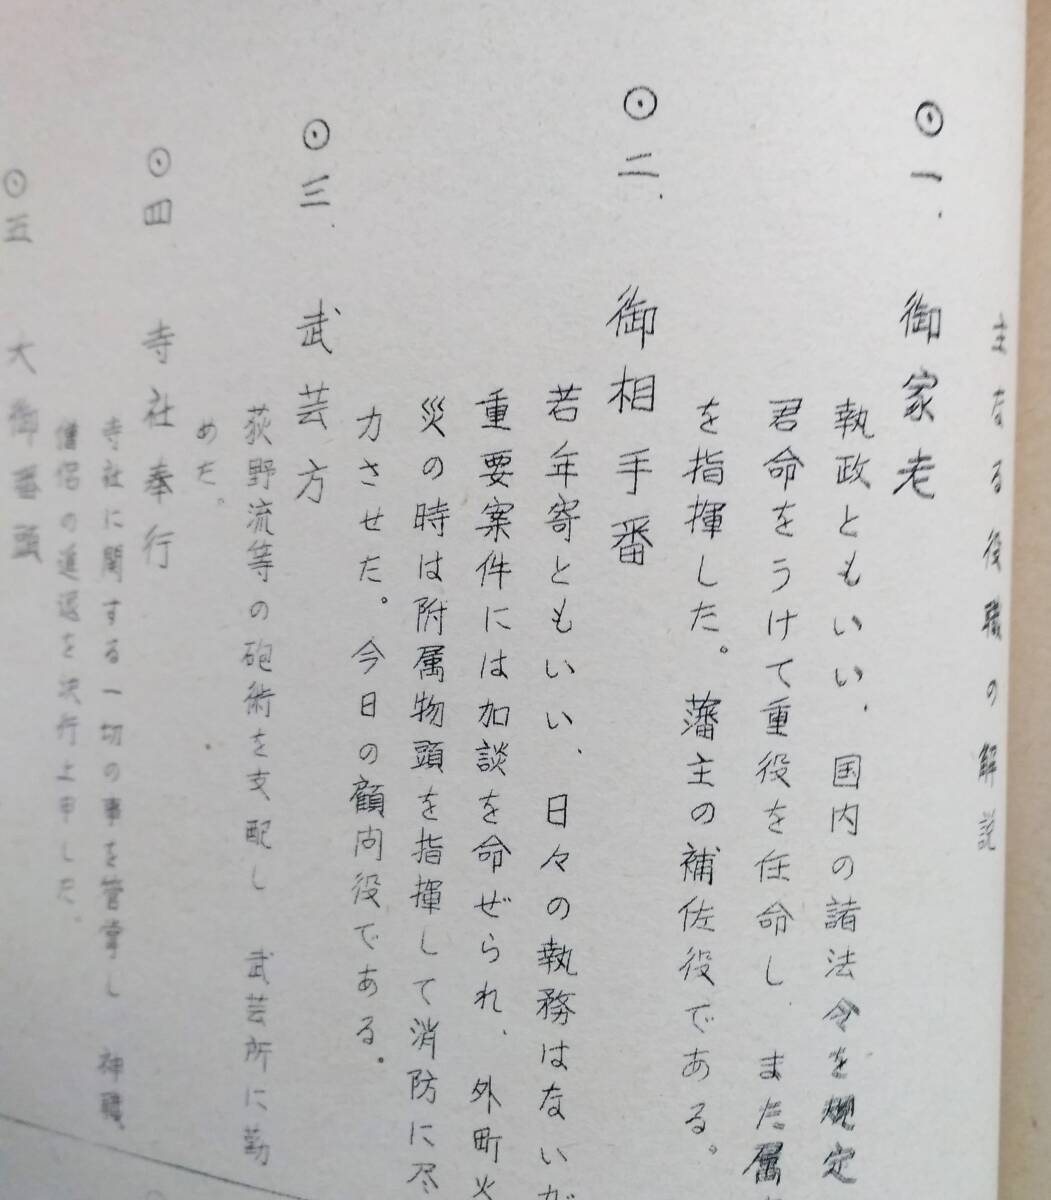 主なる役職の解説
⊙一、御家老
執政ともいい、国内の諸法令を規定
君命をうけて重役を任命し、また属
を指揮した。藩主の補佐役である。
⊙二、御相手番
若年寄ともいい、日々の執務はないが
重要案件には加談を命ぜられ、外町火
災の時は附属物頭を指揮して消防に尽
力させた。今日の顧問役である。
⊙三、武芸方
荻野流等の砲術を支配し 武芸所に勤
めた。
⊙四 寺社奉行
寺社に関する一切の事を管掌し 神職、
僧侶の進退を決行上申した。
⊙五 大御番頭